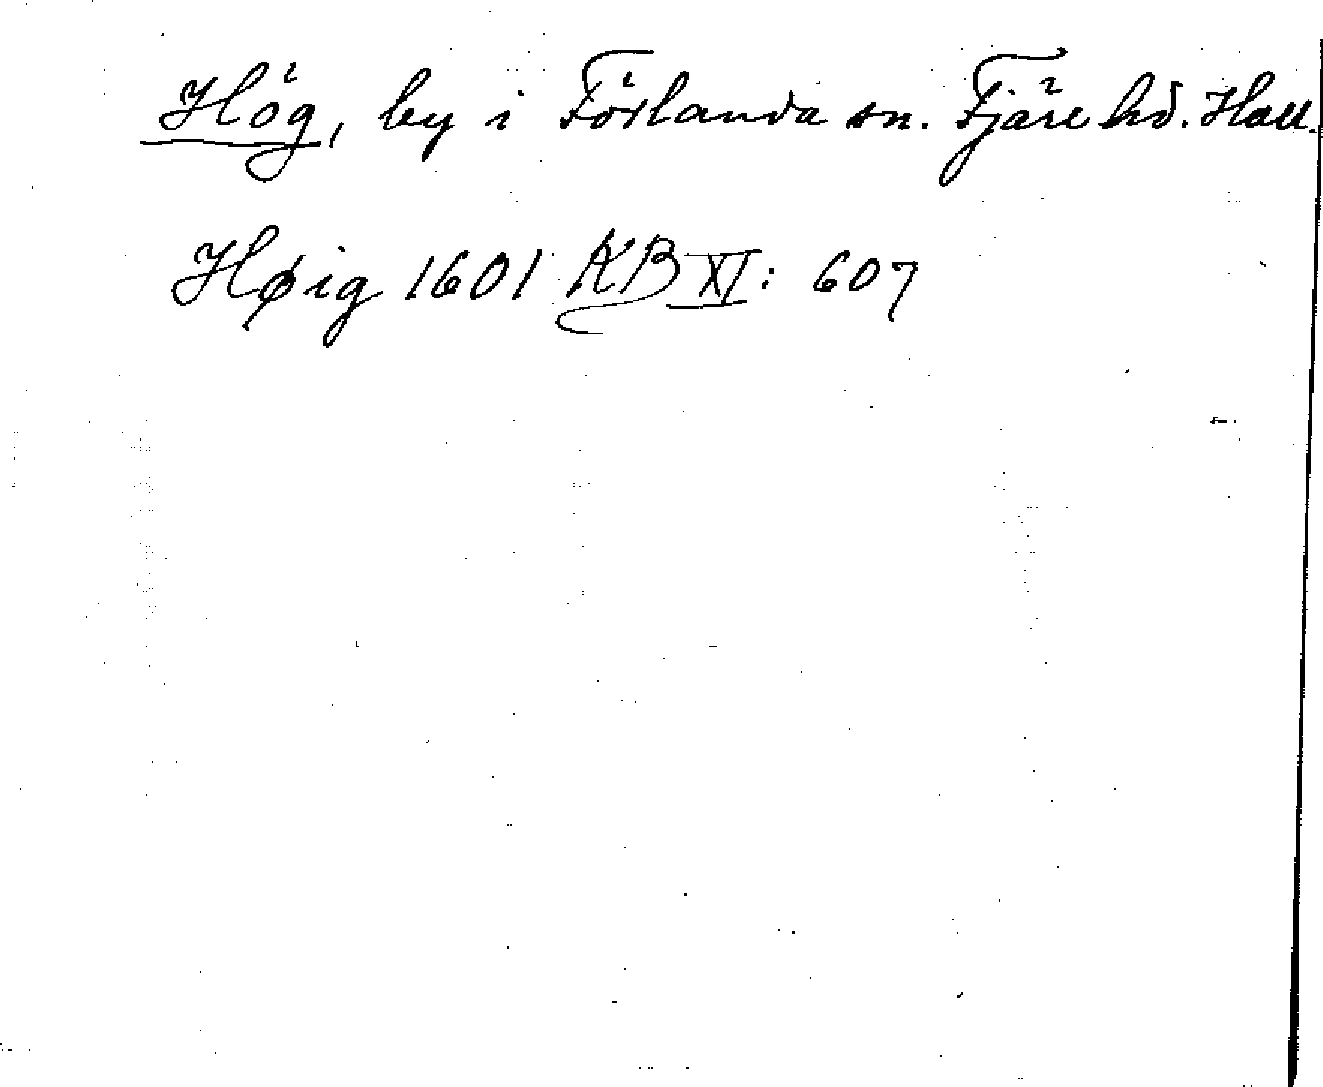 Hög, by i Förlanda sn. Fjäre hd. Hall.
Høig 1601 KB XI: 607